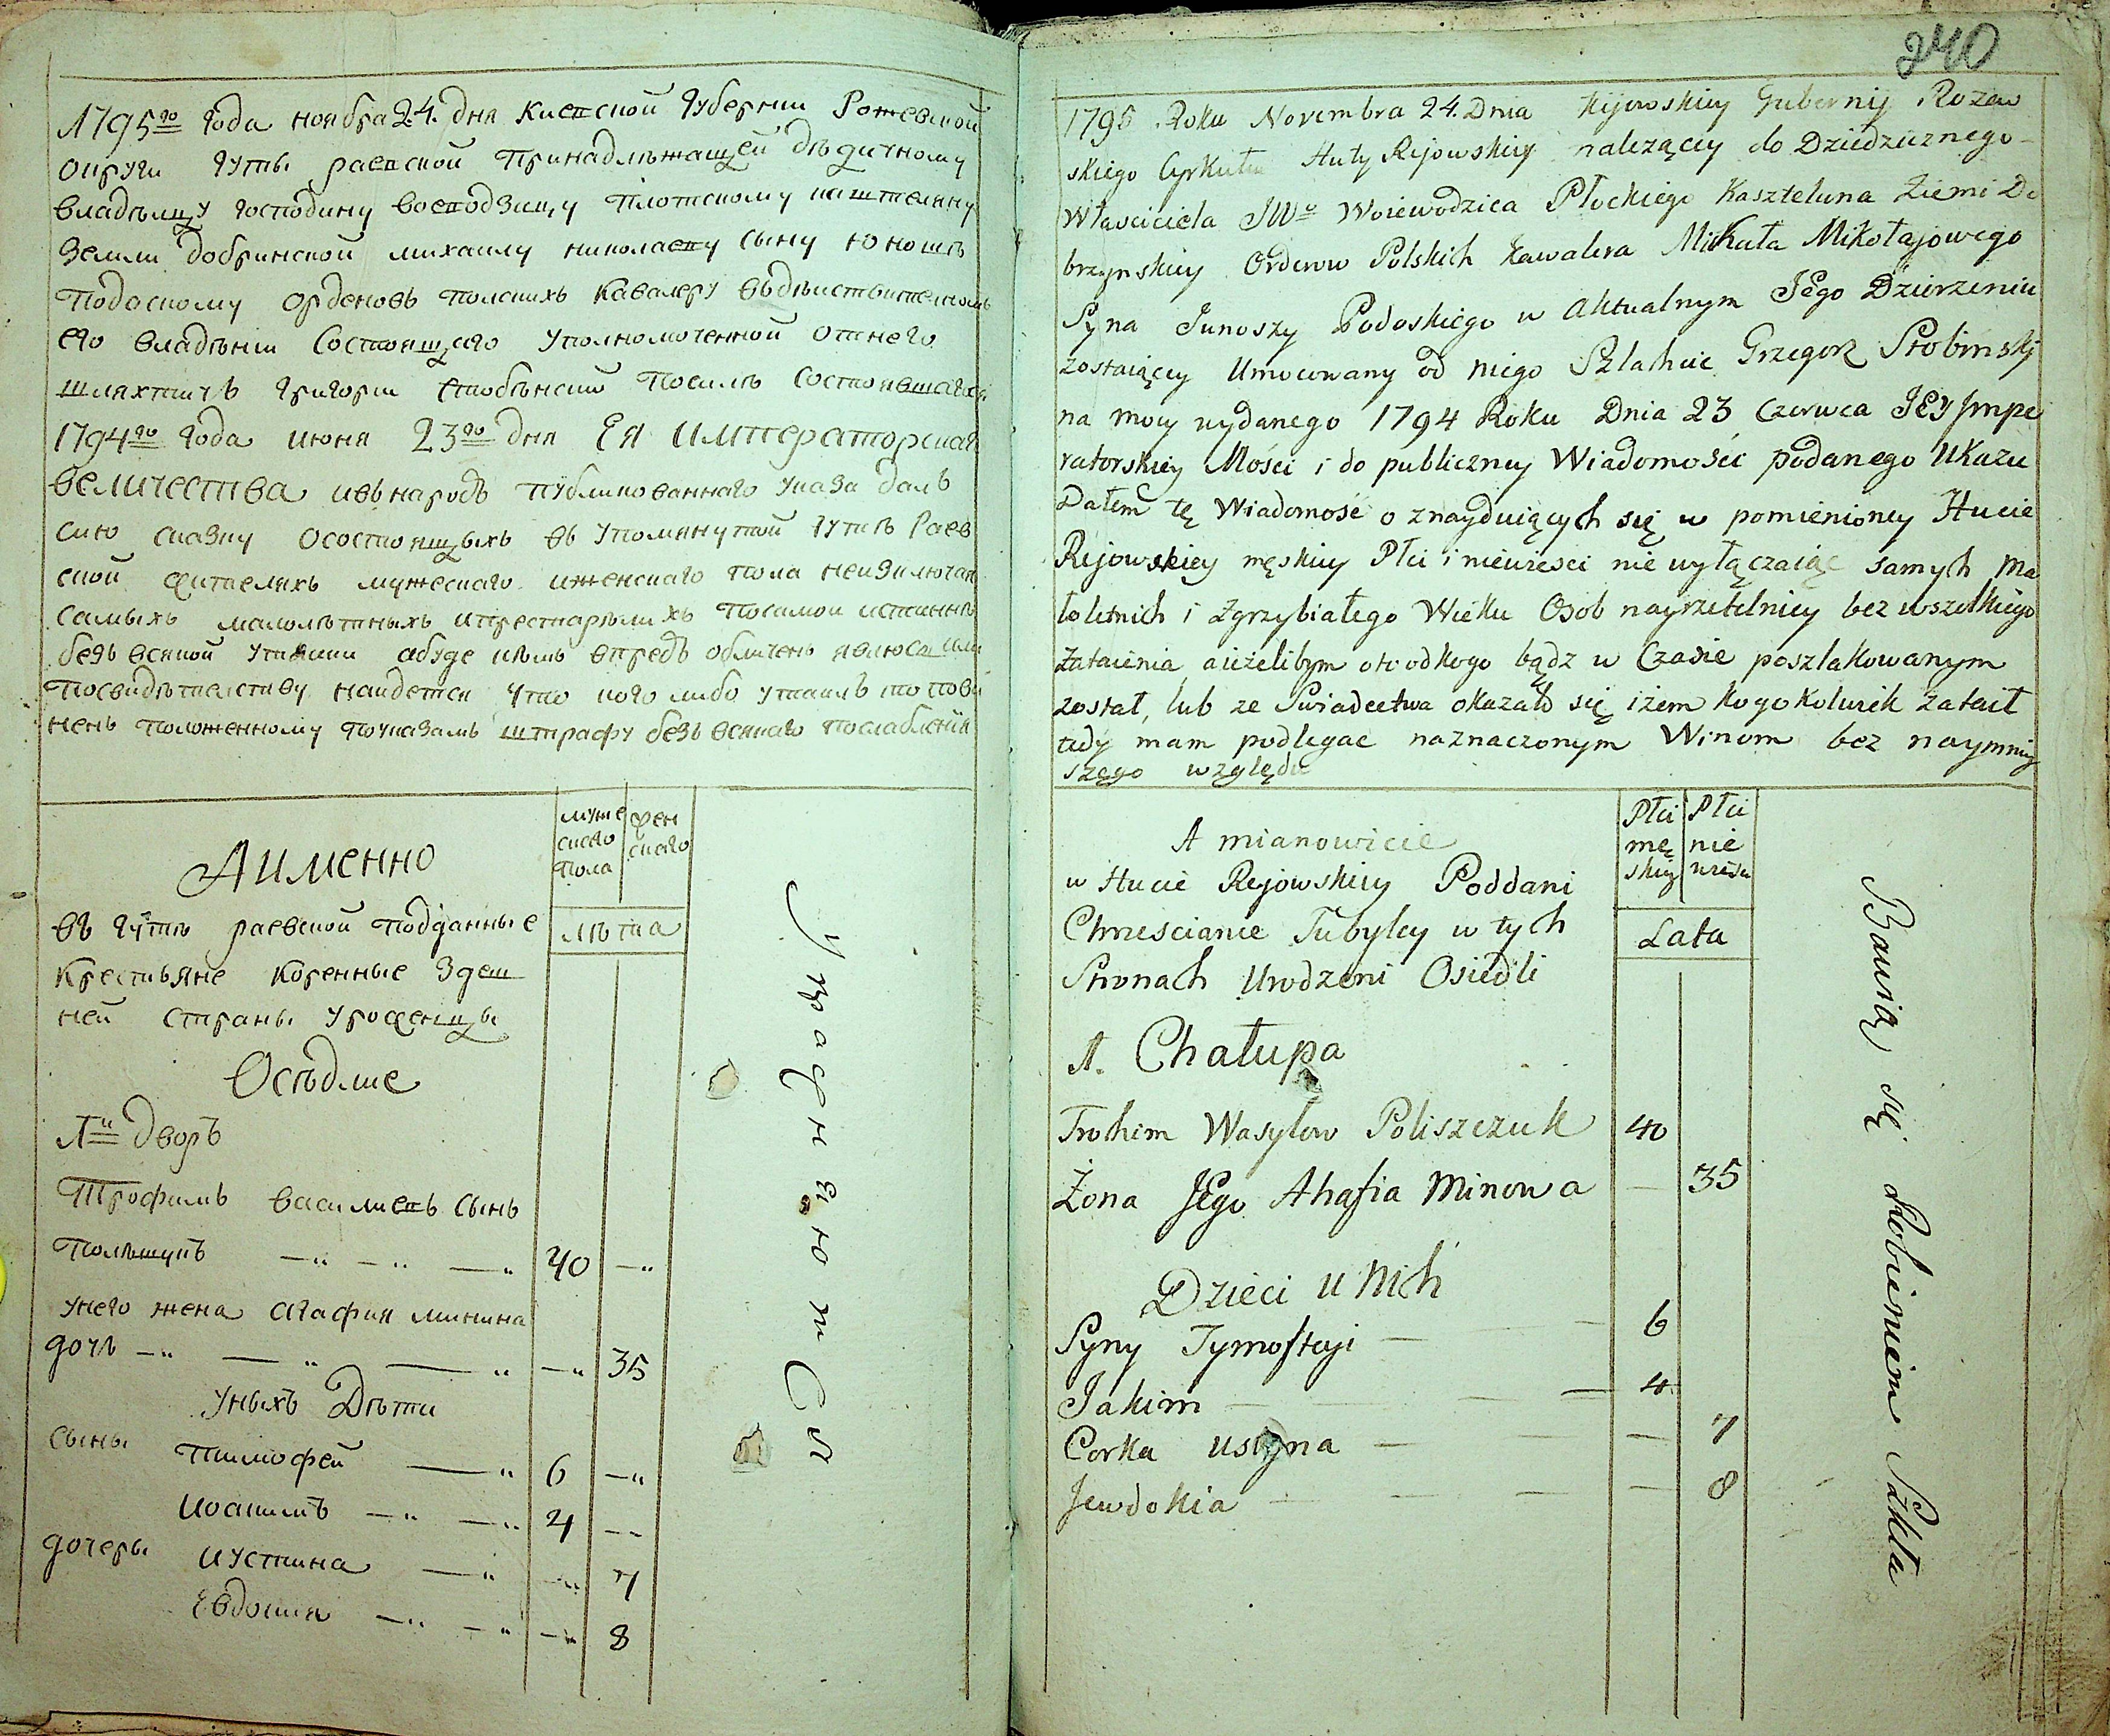 1795го года ноября 24. дня Киевской губернии Рожевской
округи гуты раевской принадлѣжащей дѣдичному
владѣлцу господину воеводзицу плотскому каштеляну
земли добринской михаилу николаеву сыну юношѣ
подоскому орденовъ полскихъ кавалеру въдѣиствителномъ
его владѣнии состоящаго уполномоченной отнего
шляхтичъ григории стобѣнский посилѣ состоявшагося
1794го года июня 23го дня Ея Императорскаго
величества ивънародъ публикованнаго указа далъ
сию сказку осостоящыхъ въ упомянутой гутѣ Раев
ской жителяхъ мужескаго иженскаго пола неизключая
самыхъ малолѣтныхъ ипрестарѣлихъ посамой истиннѣ
безъ всякой утайки абуде кѣмъ впредъ обличенъ явлюсь или
посвидѣтелству наидется что кого либо утаилъ то пови
ненъ положенному поуказамъ штрафу безъ всякаго послаблѣния
Аименно
муже
скаго
пола
жен
скаго
лѣта
въ гутѣ раевской подданные
крестьяне коренные здеш
ней страны уроженцы
Осѣдлие
1й дворъ
Трофимъ василиевъ сынъ
полѣщукъ 40
унего жена агафия минина
дочь 35
уныхъ Дѣти
сыны тимофей 6
иоакимъ 4
дочеры иустина 7
Евдокия 8
УпражняютСя
240
1795 Roku Novembra 24. Dnia Kijowskiey Gubernij Rozew
skiego Cyrkułu Huty Rejowskiey należącey do Dziedzicznego
Własciciela JWo Woiewodzica Płockiego Kasztelana Ziemi Do
brzynskiey Orderow Polskich Kawalera Michała Mikołajowego
Syna Junoszy Podoskiego w Aktualnym Jego Dzierzeniu
zostaiącey Umocowany od niego Szlahcic Grzegorz Stobinskj
na mocy wydanego 1794 Roku Dnia 23 Czerwca JEY Jmpe
ratorskiey Mości i do publiczney Wiadomości podanego Ukazu
Dałem tę Wiadomość o znayduiących się w pomienioney Hucie
Rejowskiey męskiey Płci i niewiesci nie wyłączaiąc samych Ma
łoletnich i Zgrzybiałego Wieku Osob nayrzetelniey bez wszelkiego
Zataienia, aieżelibym oto odkogo bądz w Czasie poszlakowanym
został, lub ze Swiadectwa okazało się iżem kogokolwiek zataił
tedy mam podlegac naznaczonym Winom bez naymniey
szego względu
A mianowicie
Płci
mę
skiey
Płci
nie
wiesci
Lata
w Hucie Rejowskiey Poddani
Chrzescianie Tubylcy w tych
Stronach Urodzeni Osiedli
1. Chałupa
Trohim Wasylow Poliszczuk 40
Żona Jego Ahafia Minowa 35
Dzieci u Nich
Syny Tymoftey 6
Jakim 4
Corka Ustyna 7
Jewdokia 8
Bawią się Robieniem Szkła